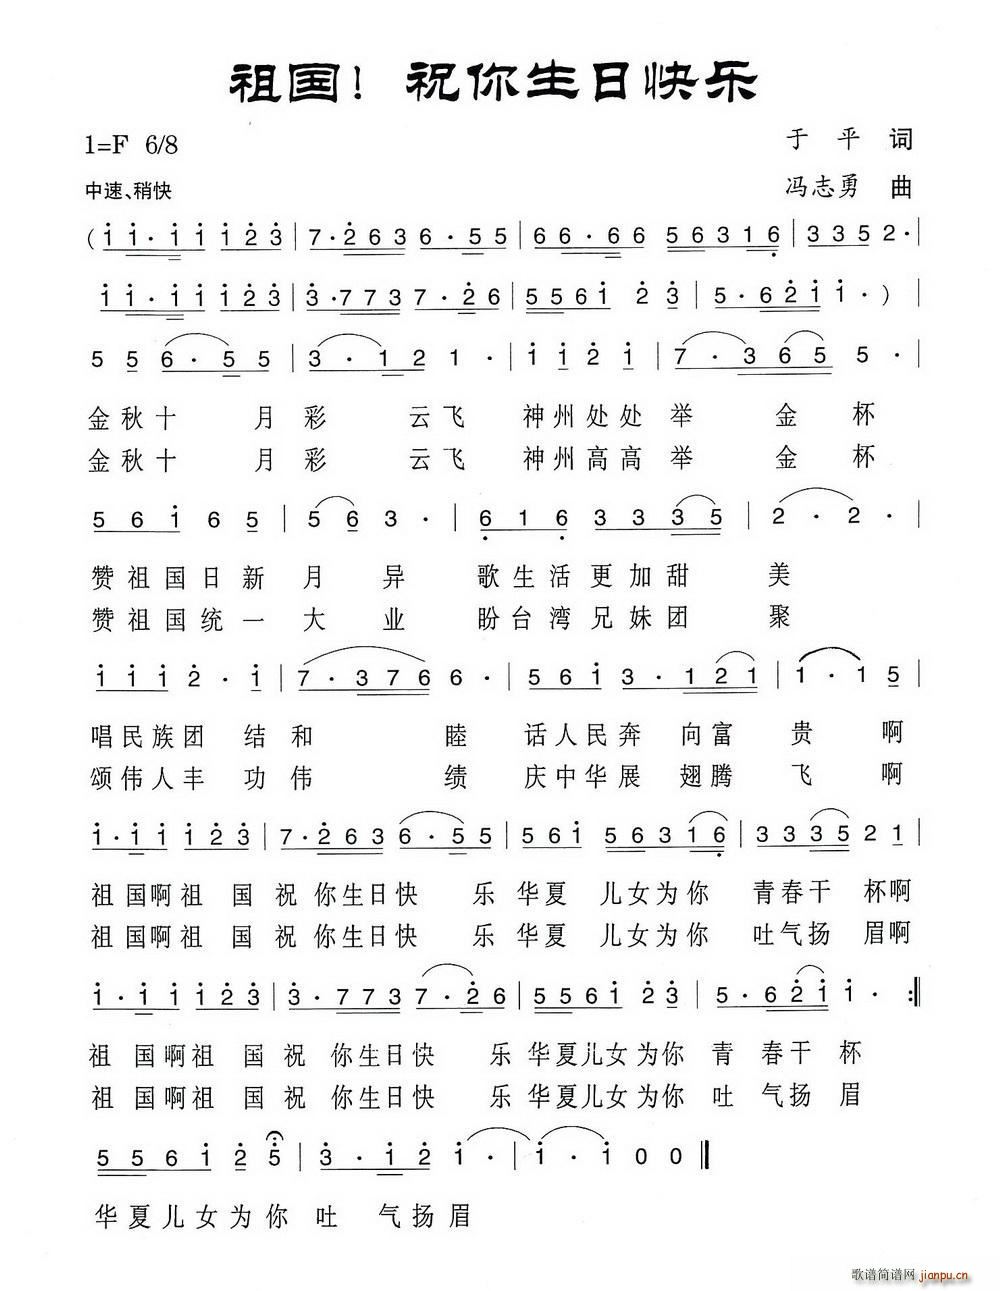 祖国！祝你生日快乐
1=F 6/8
于 平 词
中速、稍快
冯志勇 曲
(1 1·1 1 1 2 3 | 7·2 6 3 6·5 5 | 6 6·6 6 5 6 3 1 6 | 3 3 5 2· |
1 1·1 1 1 2 3 | 3·7 7 3 7·2 6 | 5 5 6 1 2 3 | 5·6 2 1 1·) |
5 5 6·5 5 | 3·1 2 1· | 1 1 2 1 | 7·3 6 5 5· |
金秋十 月彩 云飞 神州处处举 金 杯
金秋十 月彩 云飞 神州高高举 金 杯
5 6 1 6 5 | 5 6 3· | 6 1 6 3 3 3 5 | 2· 2· |
赞祖国日新月异 歌生活更加甜 美
赞祖国统一大业 盼台湾兄妹团 聚
1 1 1 2·1 | 7·3 7 6 6· | 5 6 1 3·1 2 1 | 1·1 5 |
唱民族团 结和 睦 话人民奔 向富 贵 啊
颂伟人丰 功伟 绩 庆中华展 翅腾 飞 啊
1·1 1 1 2 3 | 7·2 6 3 6·5 5 | 5 6 1 5 6 3 1 6 | 3 3 3 5 2 1 |
祖 国啊祖 国 祝 你生日快 乐 华夏 儿女为你 青春干 杯啊
祖 国啊祖 国 祝 你生日快 乐 华夏 儿女为你 吐气扬 眉啊
1·1 1 1 2 3 | 3·7 7 3 7·2 6 | 5 5 6 1 2 3 | 5·6 2 1 1· :‖
祖 国啊祖 国 祝 你生日快 乐 华夏儿女为你 青 春干 杯
祖 国啊祖 国 祝 你生日快 乐 华夏儿女为你 吐 气扬 眉
5 5 6 1 2 5 | 3·1 2 1· | 1·1 0 0 ‖
华夏儿女为你 吐 气扬 眉
歌谱简谱网 jianpu.cn